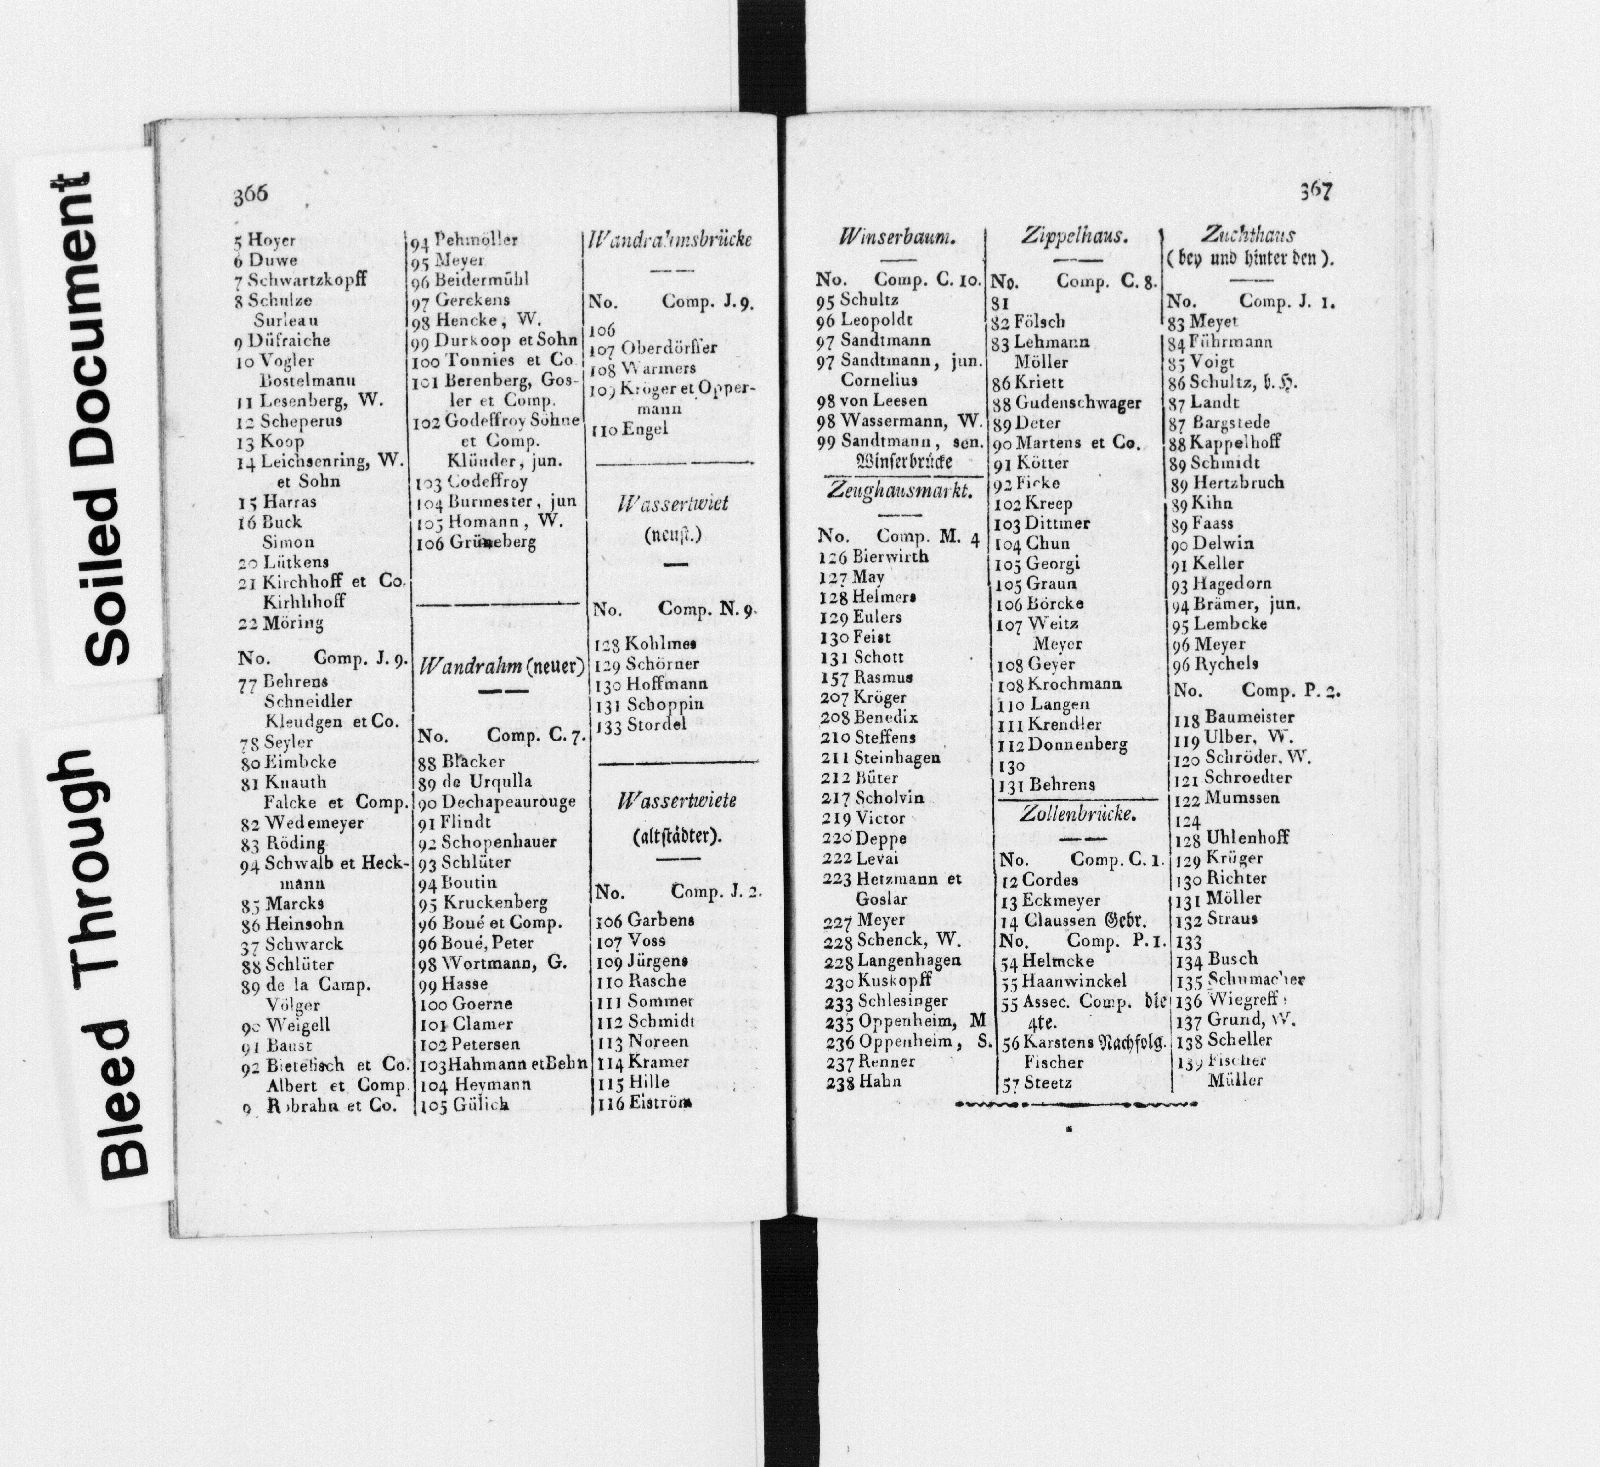 Soiled Document
Bleed Through
366
5 Hoyer
6 Duwe
7 Schwartzkopff
8 Schulze
Surleau
9 Düfraiche
10 Vogler
Bostelmann
11 Lesenberg, W.
12 Scheperus
13 Koop
14 Leichsenring, W.
et Sohn
15 Harras
16 Buck
Simon
20 Lütkens
21 Kirchhoff et Co.
Kirhhhoff
22 Möring
No. Comp. J. 9.
77 Behrens
Schneidler
Kleudgen et Co.
78 Seyler
80 Eimbcke
81 Knauth
Falcke et Comp.
82 Wedemeyer
83 Röding
94 Schwalb et Heck-
mann
85 Marcks
86 Heinsohn
37 Schwarck
88 Schlüter
89 de la Camp.
Völger
90 Weigell
91 Baust
92 Bietelisch et Co.
Albert et Comp.
9 Robrahn et Co.
94 Pehmöller
95 Meyer
96 Beidermühl
97 Gerckens
98 Hencke, W.
99 Durkoop et Sohn
100 Tonnies et Co
101 Berenberg, Gos-
ler et Comp.
102 Godeffroy Söhne
et Comp.
Klünder, jun.
103 Godeffroy
104 Burmester, jun
105 Homann, W.
106 Grüneberg
Wandrahm (neuer)
No. Comp. C. 7.
88 Blacker
89 de Urqulla
90 Dechapeaurouge
91 Flindt
92 Schopenhauer
93 Schlüter
94 Boutin
95 Kruckenberg
96 Boué et Comp.
96 Boué, Peter
98 Wortmann, G.
99 Hasse
100 Goerne
101 Clamer
102 Petersen
103 Hahmann et Behn
104 Heymann
105 Gülich
Wandrahmsbrücke
No. Comp. J. 9.
106
107 Oberdörffer
108 Warmers
109 Kröger et Opper-
mann
110 Engel
Wassertwiet
(neust.)
No. Comp. N. 9.
128 Kohlmes
129 Schörner
130 Hoffmann
131 Schoppin
133 Stordel
Wassertwiete
(altstädter).
No. Comp. J. 2.
106 Garbens
107 Voss
109 Jürgens
110 Rasche
111 Sommer
112 Schmidt
113 Noreen
114 Kramer
115 Hille
116 Eiström
367
Winserbaum.
No. Comp. C. 10.
95 Schultz
96 Leopoldt
97 Sandtmann
97 Sandtmann, jun.
Cornelius
98 von Leesen
98 Wassermann, W.
99 Sandtmann, sen.
Winserbrücke
Zeughausmarkt.
No. Comp. M. 4
126 Bierwirth
127 May
128 Helmers
129 Eulers
130 Feist
131 Schott
157 Rasmus
207 Kröger
208 Benedix
210 Steffens
211 Steinhagen
212 Büter
217 Scholvin
219 Victor
220 Deppe
222 Levai
223 Hetzmann et
Goslar
227 Meyer
228 Schenck, W.
228 Langenhagen
230 Kuskopff
233 Schlesinger
235 Oppenheim, M
236 Oppenheim, S.
237 Renner
238 Hahn
Zippelhaus.
No. Comp. C. 8.
81
82 Fölsch
83 Lehmann
Möller
86 Kriett
88 Gudenschwager
89 Deter
90 Martens et Co.
91 Kötter
92 Ficke
102 Kreep
103 Dittmer
104 Chun
105 Georgi
105 Graun
106 Börcke
107 Weitz
Meyer
108 Geyer
108 Krochmann
110 Langen
111 Krendler
112 Donnenberg
130
131 Behrens
Zollenbrücke.
No. Comp. C. 1.
12 Cordes
13 Eckmeyer
14 Claussen Gebr.
No. Comp. P. 1.
54 Helmcke
55 Haanwinckel
55 Assec. Comp. die
4te.
56 Karstens Nachfolg.
Fischer
57 Steetz
Zuchthaus
(bey und hinter den).
No. Comp. J. 1.
83 Meyer
84 Führmann
85 Voigt
86 Schultz, b. H.
87 Landt
87 Bargstede
88 Kappelhoff
89 Schmidt
89 Hertzbruch
89 Kihn
89 Faass
90 Delwin
91 Keller
93 Hagedorn
94 Brämer, jun.
95 Lembcke
96 Meyer
96 Rychels
No. Comp. P. 2.
118 Baumeister
119 Ulber, W.
120 Schröder, W.
121 Schroedter
122 Mumssen
124
128 Uhlenhoff
129 Krüger
130 Richter
131 Möller
132 Straus
133
134 Busch
135 Schumacher
136 Wiegreff
137 Grund, W.
138 Scheller
139 Fischer
Müller